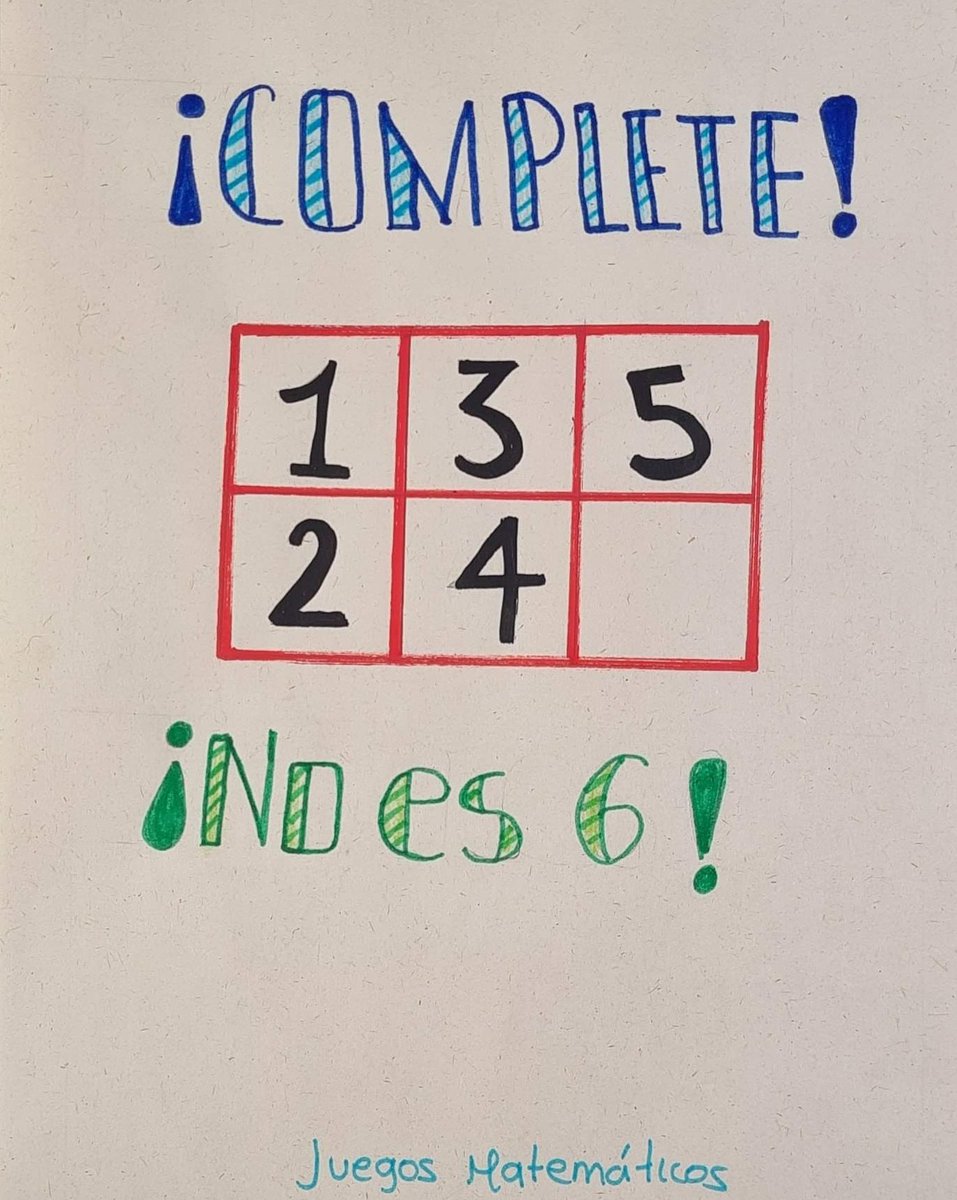 ¡COMPLETE!
1 3 5
2 4
¡NO es 6!
Juegos Matemáticos